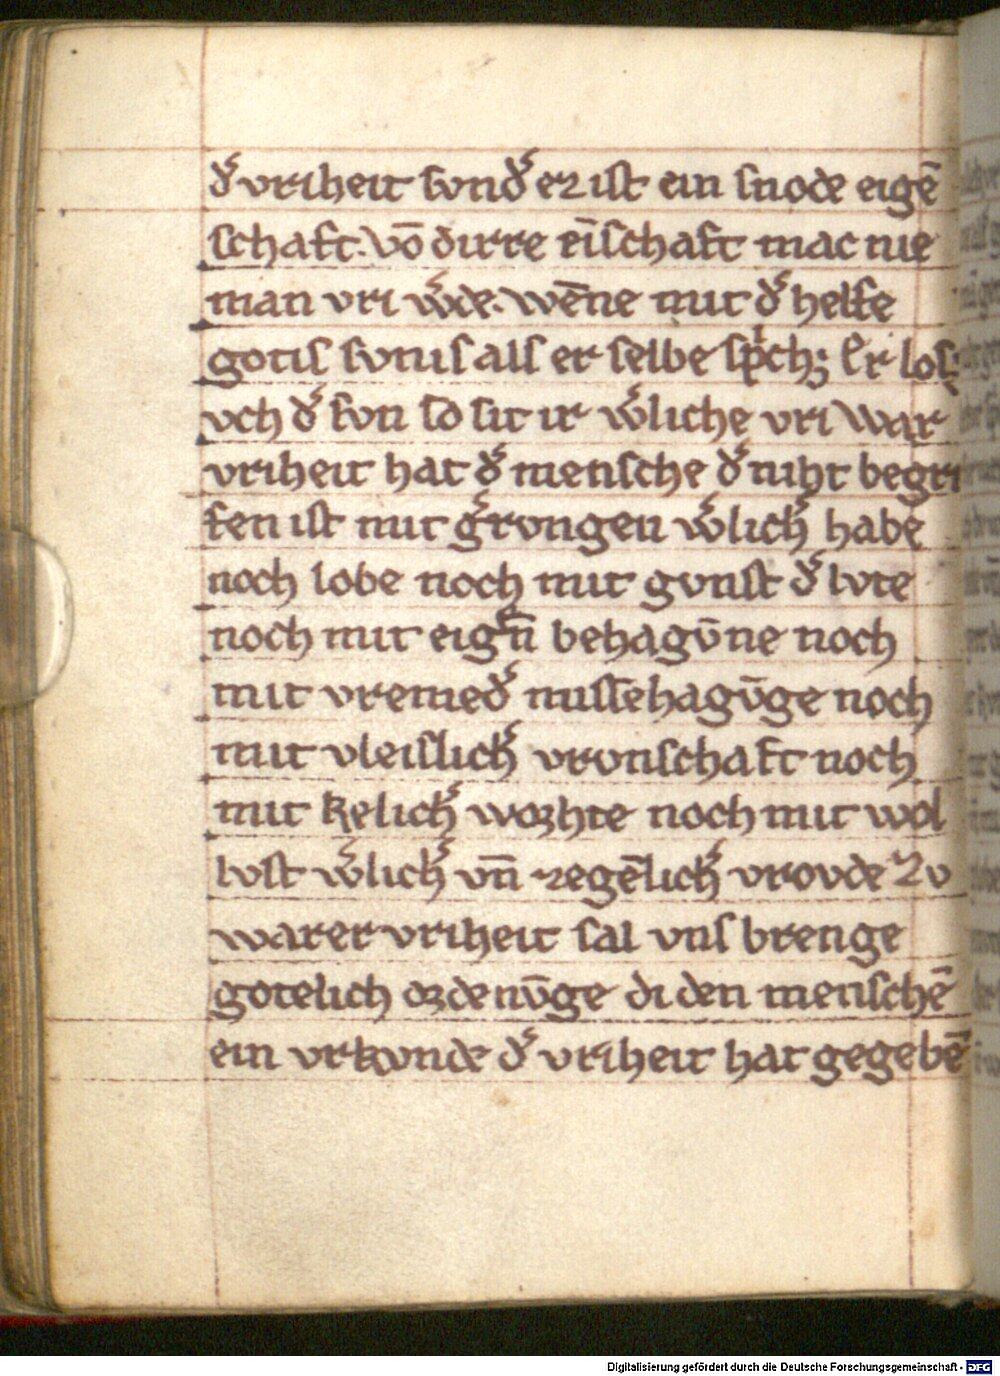 d᷑ vriheit sund᷑ ez ist ein snode eigē
schaft. Vō dirre eīschaft mac nie
man vri w᷑de. wēne mit d᷑ helfe
gotis sunis als er selbe sp᷑ch; Er los
uch d᷑ sun so sit ir w᷑liche vri War
vriheit hat d᷑ mensche d᷑ niht begri
fen ist mit g᷑rungen w᷑lich᷑ habe
noch lobe noch mit gunst d᷑ lute
noch mit eig᷑n̄ behagūne noch
mit vremed᷑ missehagūge noch
mit vleislich᷑ vrunschaft noch
mit kelich᷑ wozhte noch mit wol
lust w᷑lich᷑ vn̄ zegēlich᷑ vrovde Zv
warer vriheit sal vns brenge
gotelich ozdenūge di den menschē
ein vrkunde d᷑ vriheit hat gegebē
Digitalisierung gefördert durch die Deutsche Forschungsgemeinschaft - DFG